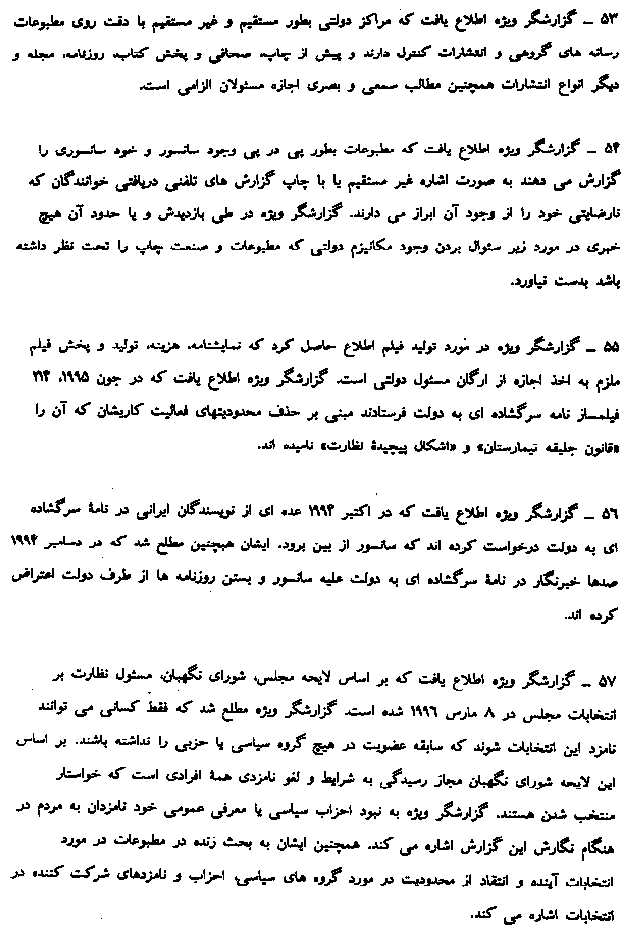 ۵۳ ــ گزارشگر ویژه اطلاع یافت که مراکز دولتی بطور مستقیم و غیر مستقیم با دقت روی مطبوعات
رسانه های گروهی و انتشارات کنترل دارند و پیش از چاپ، صحافی و پخش کتاب، روزنامه، مجله و
دیگر انواع انتشارات همچنین مطالب سمعی و بصری اجازه مسئولان الزامی است.
۵۴ ــ گزارشگر ویژه اطلاع یافت که مطبوعات بطور پی در پی وجود سانسور و خود سانسوری را
گزارش می دهند به صورت اشاره غیر مستقیم یا با چاپ گزارش های تلفنی دریافتی خوانندگان که
نارضایتی خود را از وجود آن ابراز می دارند. گزارشگر ویژه در طی بازدیدش و یا حدود آن هیچ
خبری در مورد زیر سئوال بردن وجود مکانیزم دولتی که مطبوعات و صنعت چاپ را تحت نظر داشته
باشد بدست نیاورد.
۵۵ ــ گزارشگر ویژه در مورد تولید فیلم اطلاع حاصل کرد که نمایشنامه، هزینه، تولید و پخش فیلم
ملزم به اخذ اجازه از ارگان مسئول دولتی است. گزارشگر ویژه اطلاع یافت که در جون ۱۹۹۵، ۲۱۴
فیلمساز نامه سرگشاده ای به دولت فرستادند مبنی بر حذف محدودیتهای فعالیت کاریشان که آن را
«قانون جلیقه تیمارستان» و «اشکال پیچیدهٔ نظارت» نامیده اند.
۵۶ ــ گزارشگر ویژه اطلاع یافت که در اکتبر ۱۹۹۴ عده ای از نویسندگان ایرانی در نامهٔ سرگشاده
ای به دولت درخواست کرده اند که سانسور از بین برود. ایشان همچنین مطلع شد که در دسامبر ۱۹۹۴
صدها خبرنگار در نامهٔ سرگشاده ای به دولت علیه سانسور و بستن روزنامه ها از طرف دولت اعتراض
کرده اند.
۵۷ ــ گزارشگر ویژه اطلاع یافت که بر اساس لایحه مجلس، شورای نگهبان، مسئول نظارت بر
انتخابات مجلس در ۸ مارس ۱۹۹۶ شده است. گزارشگر ویژه مطلع شد که فقط کسانی می توانند
نامزد این انتخابات شوند که سابقه عضویت در هیچ گروه سیاسی یا حزبی را نداشته باشند. بر اساس
این لایحه شورای نگهبان مجاز رسیدگی به شرایط و لغو نامزدی همهٔ افرادی است که خواستار
منتخب شدن هستند. گزارشگر ویژه به نبود احزاب سیاسی یا معرفی عمومی خود نامزدان به مردم در
هنگام نگارش این گزارش اشاره می کند. همچنین ایشان به بحث زنده در مطبوعات در مورد
انتخابات آینده و انتقاد از محدودیت در مورد گروه های سیاسی، احزاب و نامزدهای شرکت کننده در
انتخابات اشاره می کند.